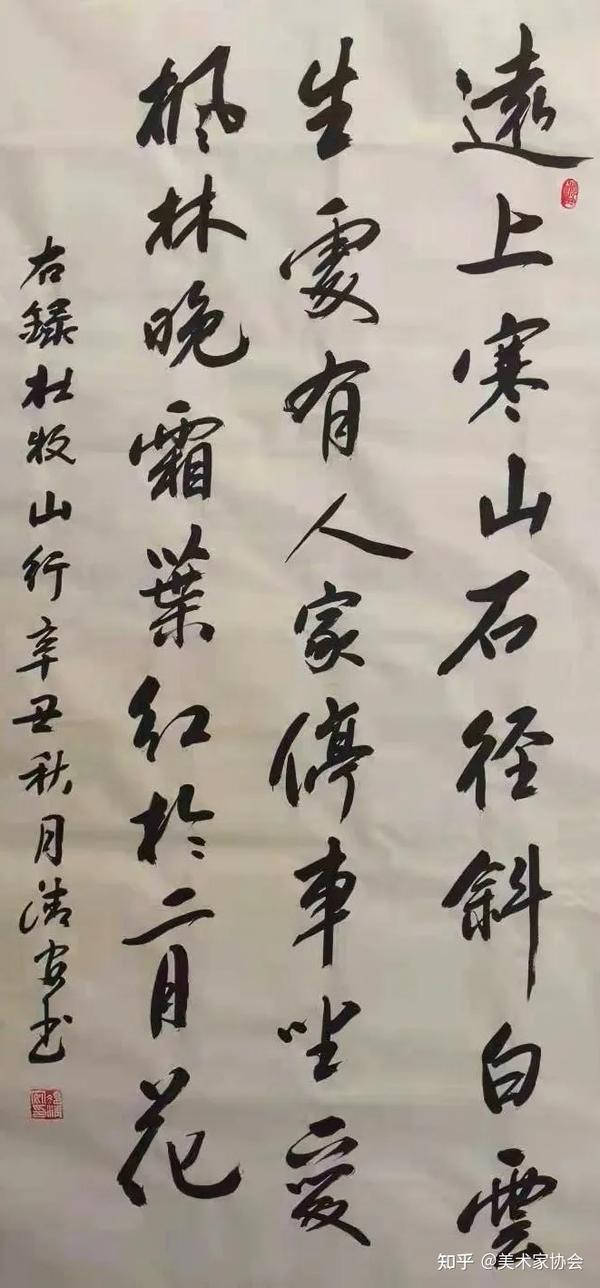 遠上寒山石径斜白雲
生處有人家停車坐愛
楓林晚霜葉紅於二月花
右録杜牧山行辛丑秋月浩宏书
知乎 @美术家协会